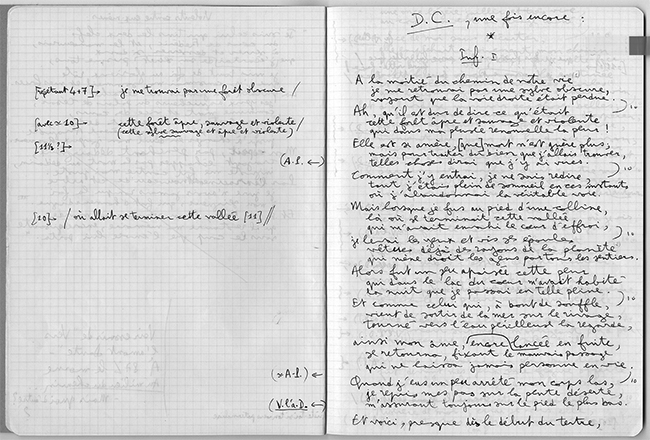 [répétant 4+7]→ je me trouvai par une forêt obscure /
[avec x 10]→ cette forêt âpre, sauvage et violente /
(cette sylve sauvage et âpre et violente)
[11½ ?]→
(A.S. ←)
[10]→ / où allait se terminer cette vallée [11] //
(x A.S.) ←
(V. l'a.D.) ←
D.C., une fois encore :
*
Inf. I
A la moitié du chemin de notre vie
je me retrouvai par une sylve obscure,
voyant que la voie droite était perdue.
Ah, qu'il est dur de dire ce qu'était
cette forêt âpre et sauvage et violente
qui dans ma pensée renouvelle la peur !
Elle est si amère, [que] mort n'est guère plus,
mais pour traiter du bien que j'allais trouver,
telles choses dirai que j'y ai vues.
Comment j'y entrai, je ne sais redire,
tant j'étais plein de sommeil en ces instants
où j'abandonnai la véritable voie.
Mais lorsque je fus au pied d'une colline,
là où se terminait cette vallée
qui m'avait envahi le cœur d'effroi,
je levai les yeux et vis ses épaules
vêtues déjà des rayons de la planète
qui mène droit les gens par tous les sentiers.
Alors fut un peu apaisée cette peur
qui dans le lac du cœur m'avait habité
la nuit que je passai en telle peine.
Et comme celui qui, à bout de souffle,
vient de sortir de la mer sur le rivage,
tourné vers l'eau périlleuse la regarde,
ainsi mon âme, encore lancée en fuite,
se retourna, fixant le mauvais passage
qui ne laissa jamais personne en vie.
Quand j'eus un peu arrêté mon corps las,
je repris mes pas sur la pente déserte,
m'assurant toujours sur le pied le plus bas.
Et voici, presque dès le début du tertre,